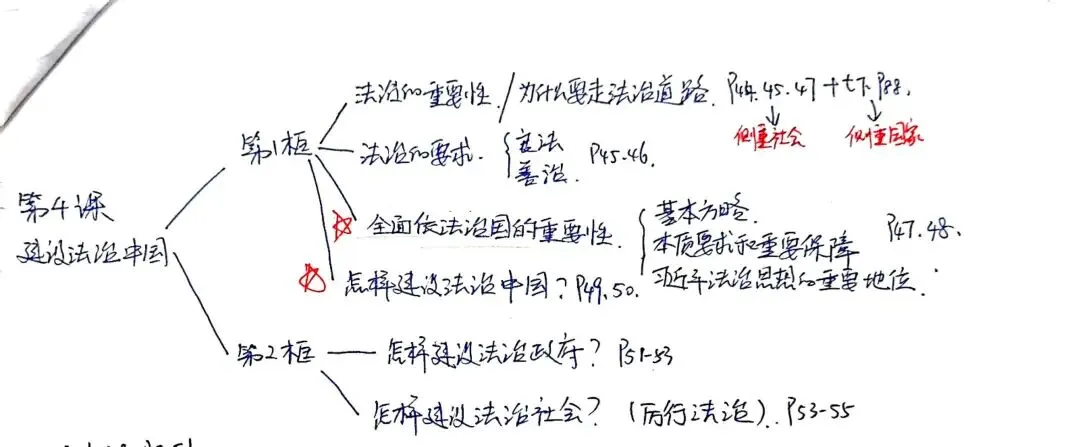 第4课
建设法治中国
第1框
法治的重要性./为什么要走法治道路. P44.45.47+七下P88.
侧重社会
侧重国家
法治的要求.
良法
善治.
P45.46.
全面依法治国的重要性.
基本方略.
本质要求和重要保障
习近平法治思想的重要地位.
P47.48.
怎样建设法治中国? P49.50.
第2框
怎样建设法治政府? P51-53
怎样建设法治社会? (厉行法治). P53-55